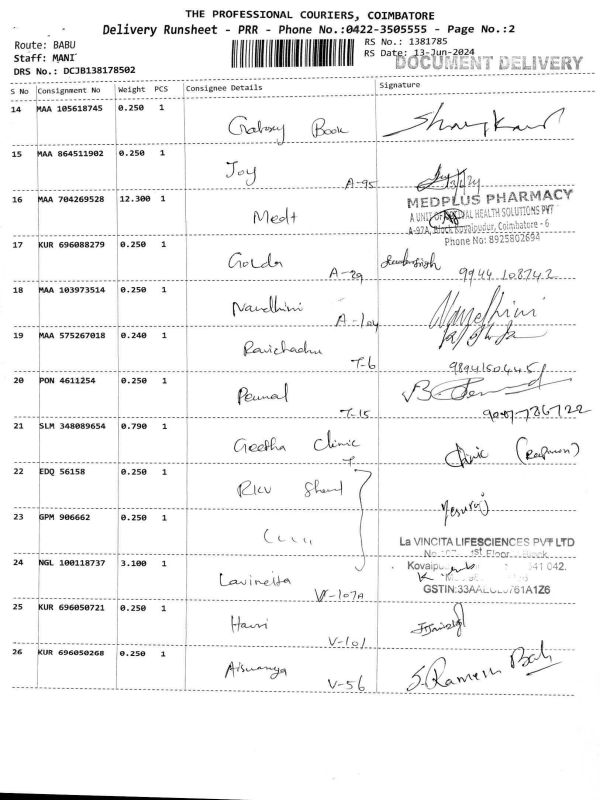 THE PROFESSIONAL COURIERS, COIMBATORE
Delivery Runsheet - PRR - Phone No.:0422-3505555 - Page No.:2
Route: BABU
RS No.: 1381785
Staff: MANI
RS Date: 13-Jun-2024
DOCUMENT DELIVERY
DRS No.: DCJB138178502
S No Consignment No Weight PCS Consignee Details Signature
14 MAA 105618745 0.250 1
Galaxy Book
15 MAA 864511902 0.250 1
Joy A-95
16 MAA 704269528 12.300 1
Medt
MEDPLUS PHARMACY
A UNIT OF HEALTH SOLUTIONS PVT
A-97A, Block Kovaipudur, Coimbatore - 6
Phone No: 8925802694
17 KUR 696088279 0.250 1
Golda A-29
9944 108742
18 MAA 103973514 0.250 1
Nandhini A-104
Nandhini
19 MAA 575267018 0.240 1
Ravichadnu T-6
9894150445
20 PON 4611254 0.250 1
Perumal T-15
21 SLM 348089654 0.790 1
Geetha Clinic T
Clinic
22 EDQ 56158 0.250 1
23 GPM 906662 0.250 1
Yesuraj
24 NGL 100118737 3.100 1
Lavinetta V-107A
La VINCITA LIFESCIENCES PVT LTD
1st Floor
Kovaipu 641 042.
GSTIN:33AA
25 KUR 696050721 0.250 1
Harri V-101
26 KUR 696050268 0.250 1
Aiswarya V-56
S. Ramesh Bab